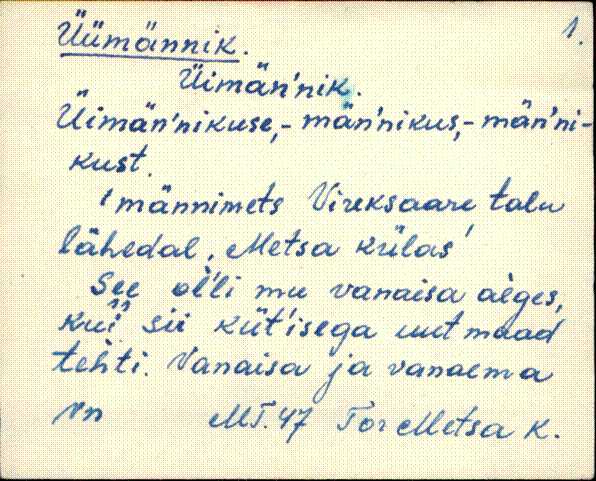 1.
Üümännik.
Üimän'nik.
Üimän'nikuse,- män'nikus,- män'ni-
kust.
'männimets Vireksaare talu
lähedal, Metsa külas'
See oĺli mu vanaisa aeges,
kui sii küt'isega uut maad
tehti. Vanaisa ja vanaema
Vn MT. 47 Tor Metsa k.